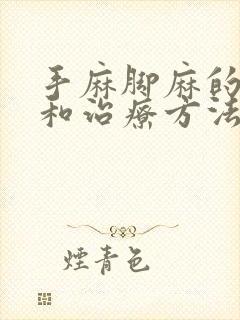 手麻脚麻的
和治疗方法
煙青色